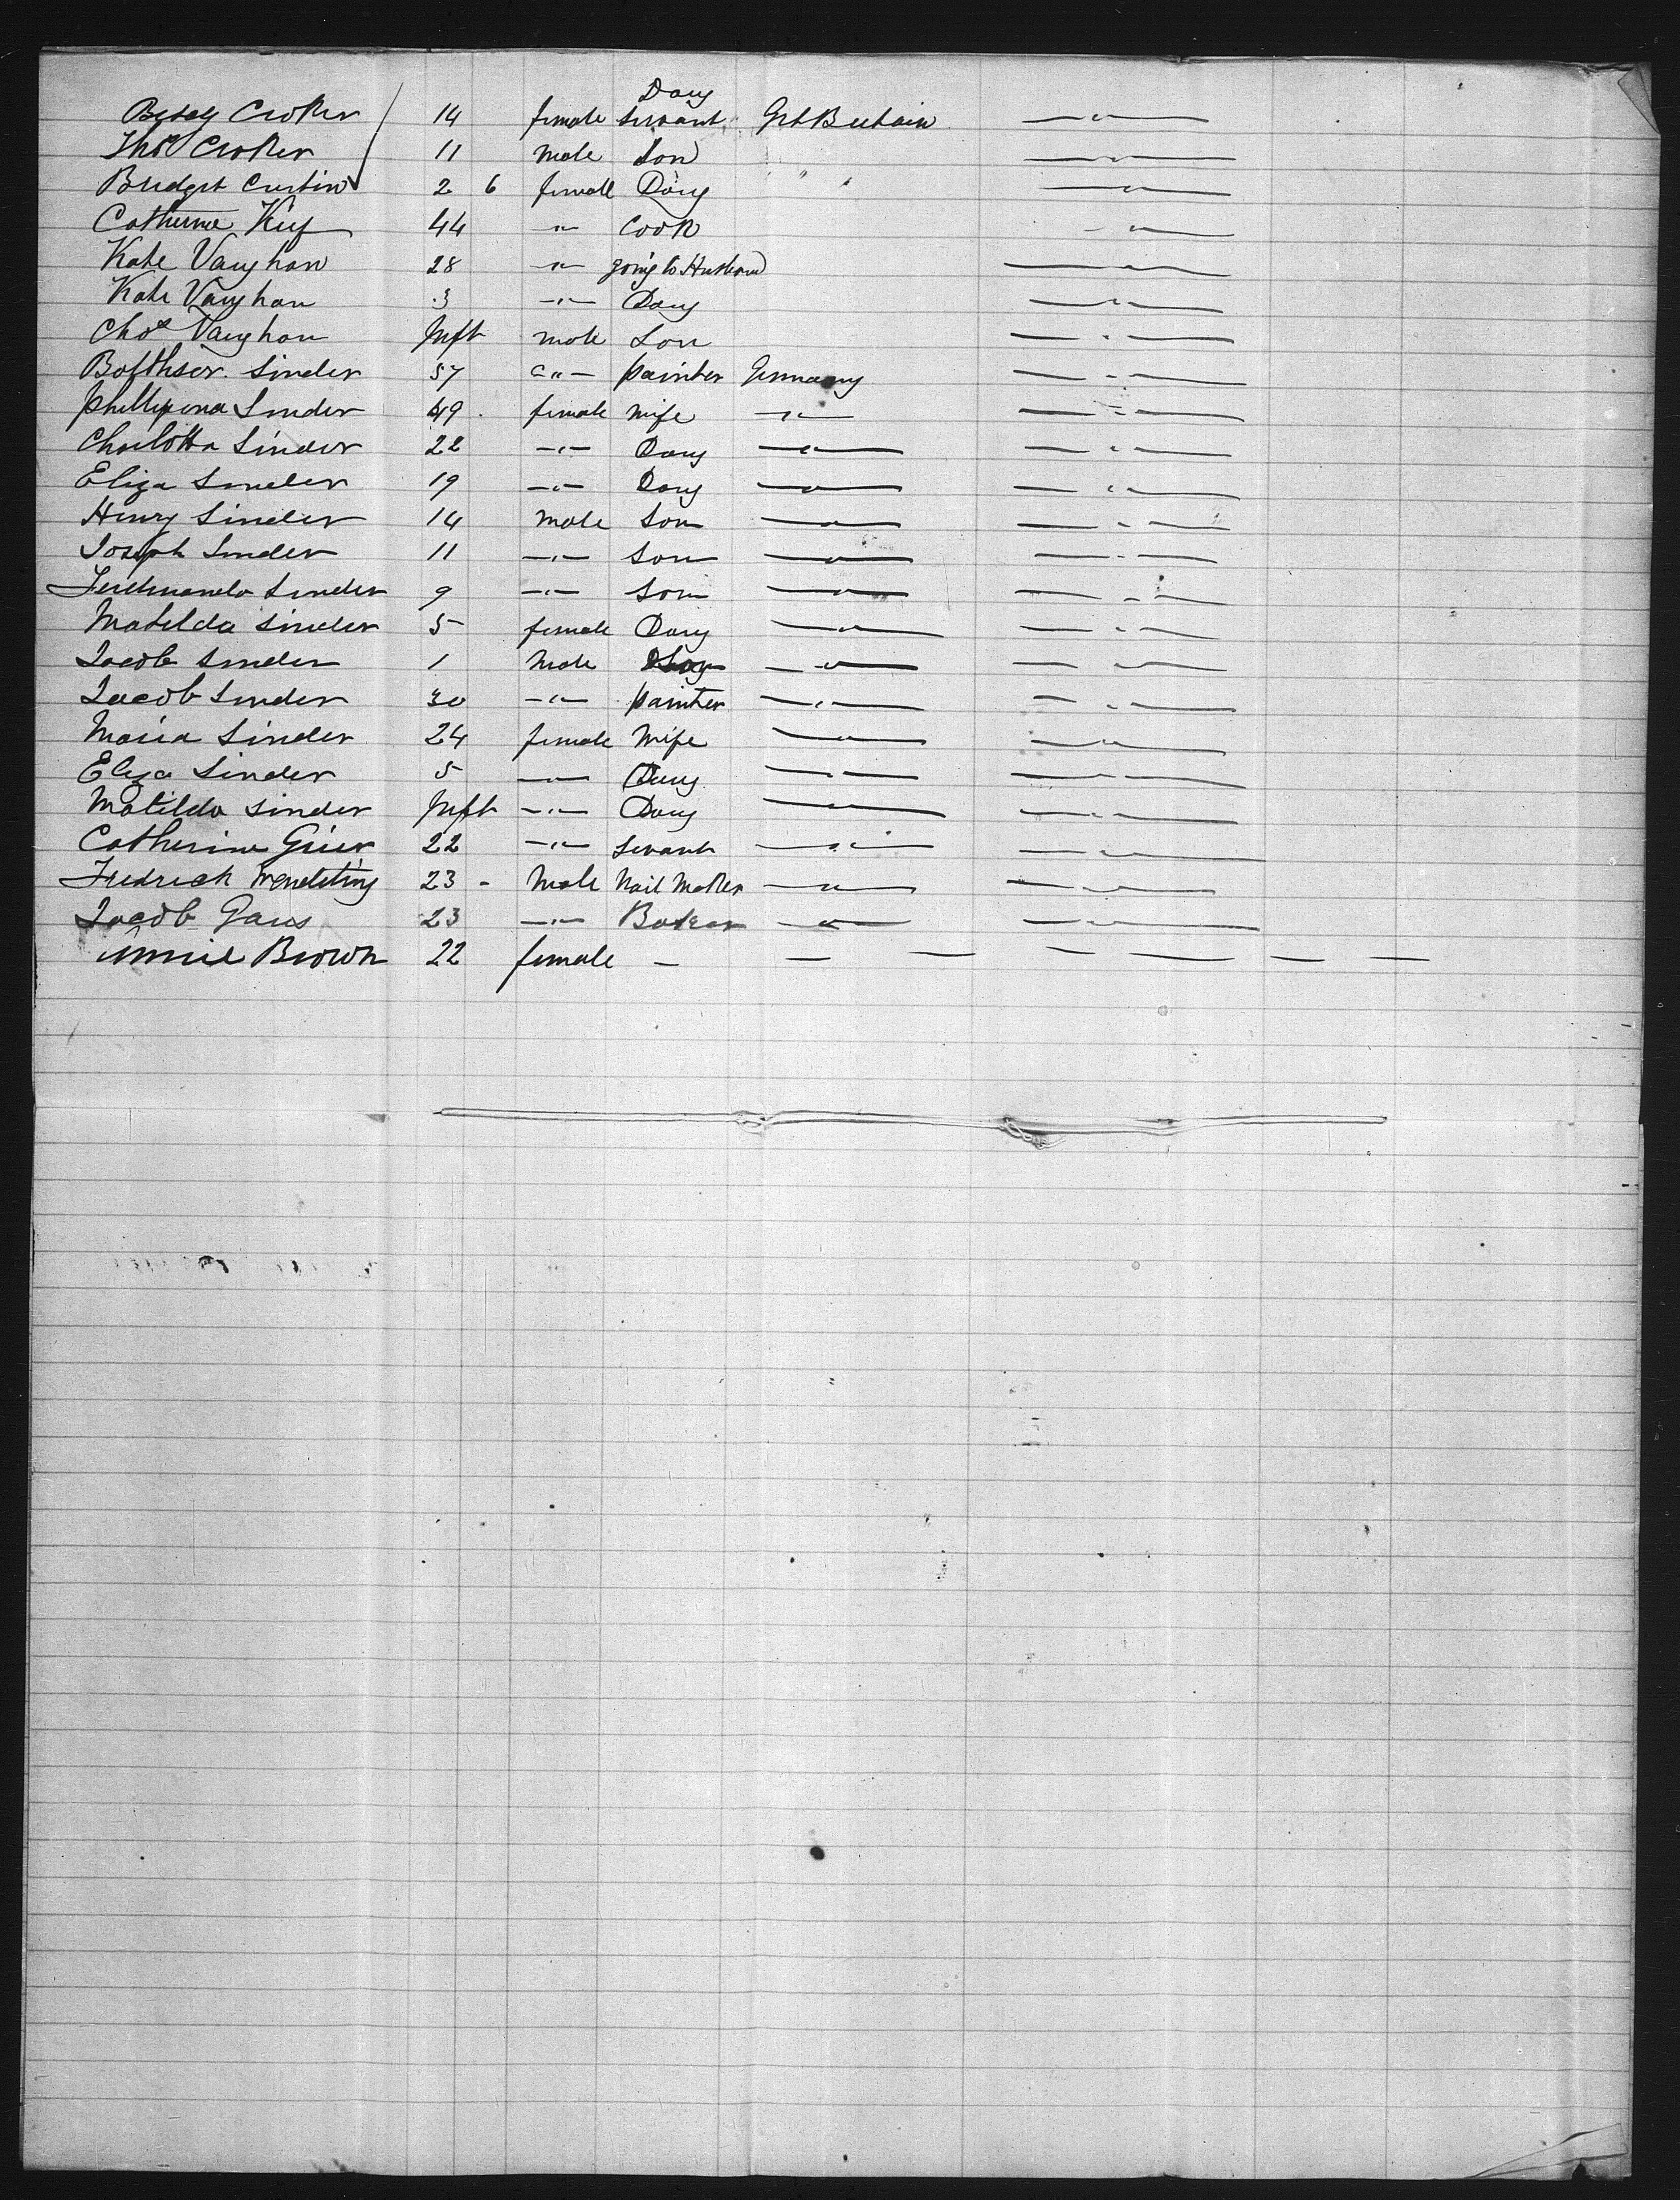 Daug
Betsy Croker 14 female Servant Grt Britain —"—
Thos Croker 11 male Son —"—
Bridget Curtin 2 6 female Daug " " —"—
Catherine Kief 44 —"— Cook —"—
Kate Vaughan 28 —"— going to Husband —"—
Kate Vaughan 3 —"— Daug —"—
Chas Vaughan Inft male Son —"—
Balthser Sinder 57 —"— painter Germany —"—
Phillipena Sinder 49 female wife —"— —"—
Charlotta Sinder 22 —"— Daug —"— —"—
Eliza Sinder 19 —"— Daug —"— —"—
Henry Sinder 14 male Son —"— —"—
Joseph Sinder 11 —"— Son —"— —"—
Ferdinando Sinder 9 —"— Son —"— —"—
Matilda Sinder 5 female Daug —"— —"—
Jacob Sinder 1 male Son —"— —"—
Jacob Sinder 30 —"— painter —"— —"—
Maria Sinder 24 female Wife —"— —"—
Eliza Sinder 5 —"— Daug —"— —"—
Matilda Sinder Inft —"— Daug —"— —"—
Catherine Grier 22 —"— Servant —"— —"—
Fredrick 23 - Male Nail Maker —"— —"—
Jacob Gaus 23 —"— Baker —"— —"—
Annie Brown 22 female — — — — — — —